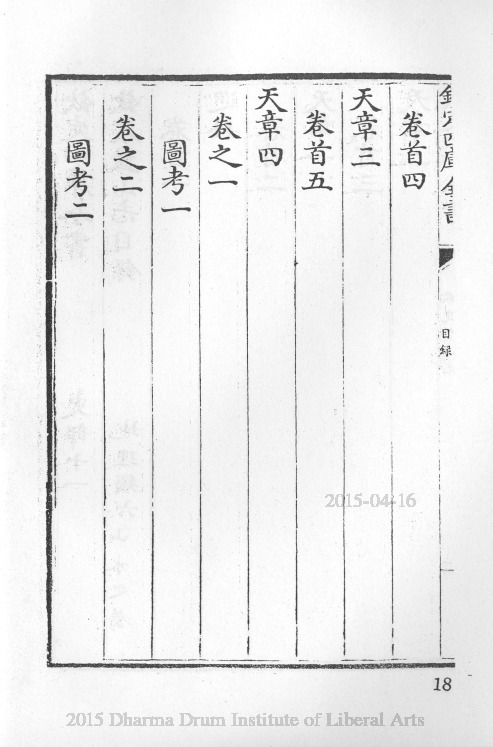 欽定四庫全書
目錄
卷首四
天章三
卷首五
天章四
卷之一
圖考一
卷之二
圖考二
2015-04-16
18
2015 Dharma Drum Institute of Liberal Arts